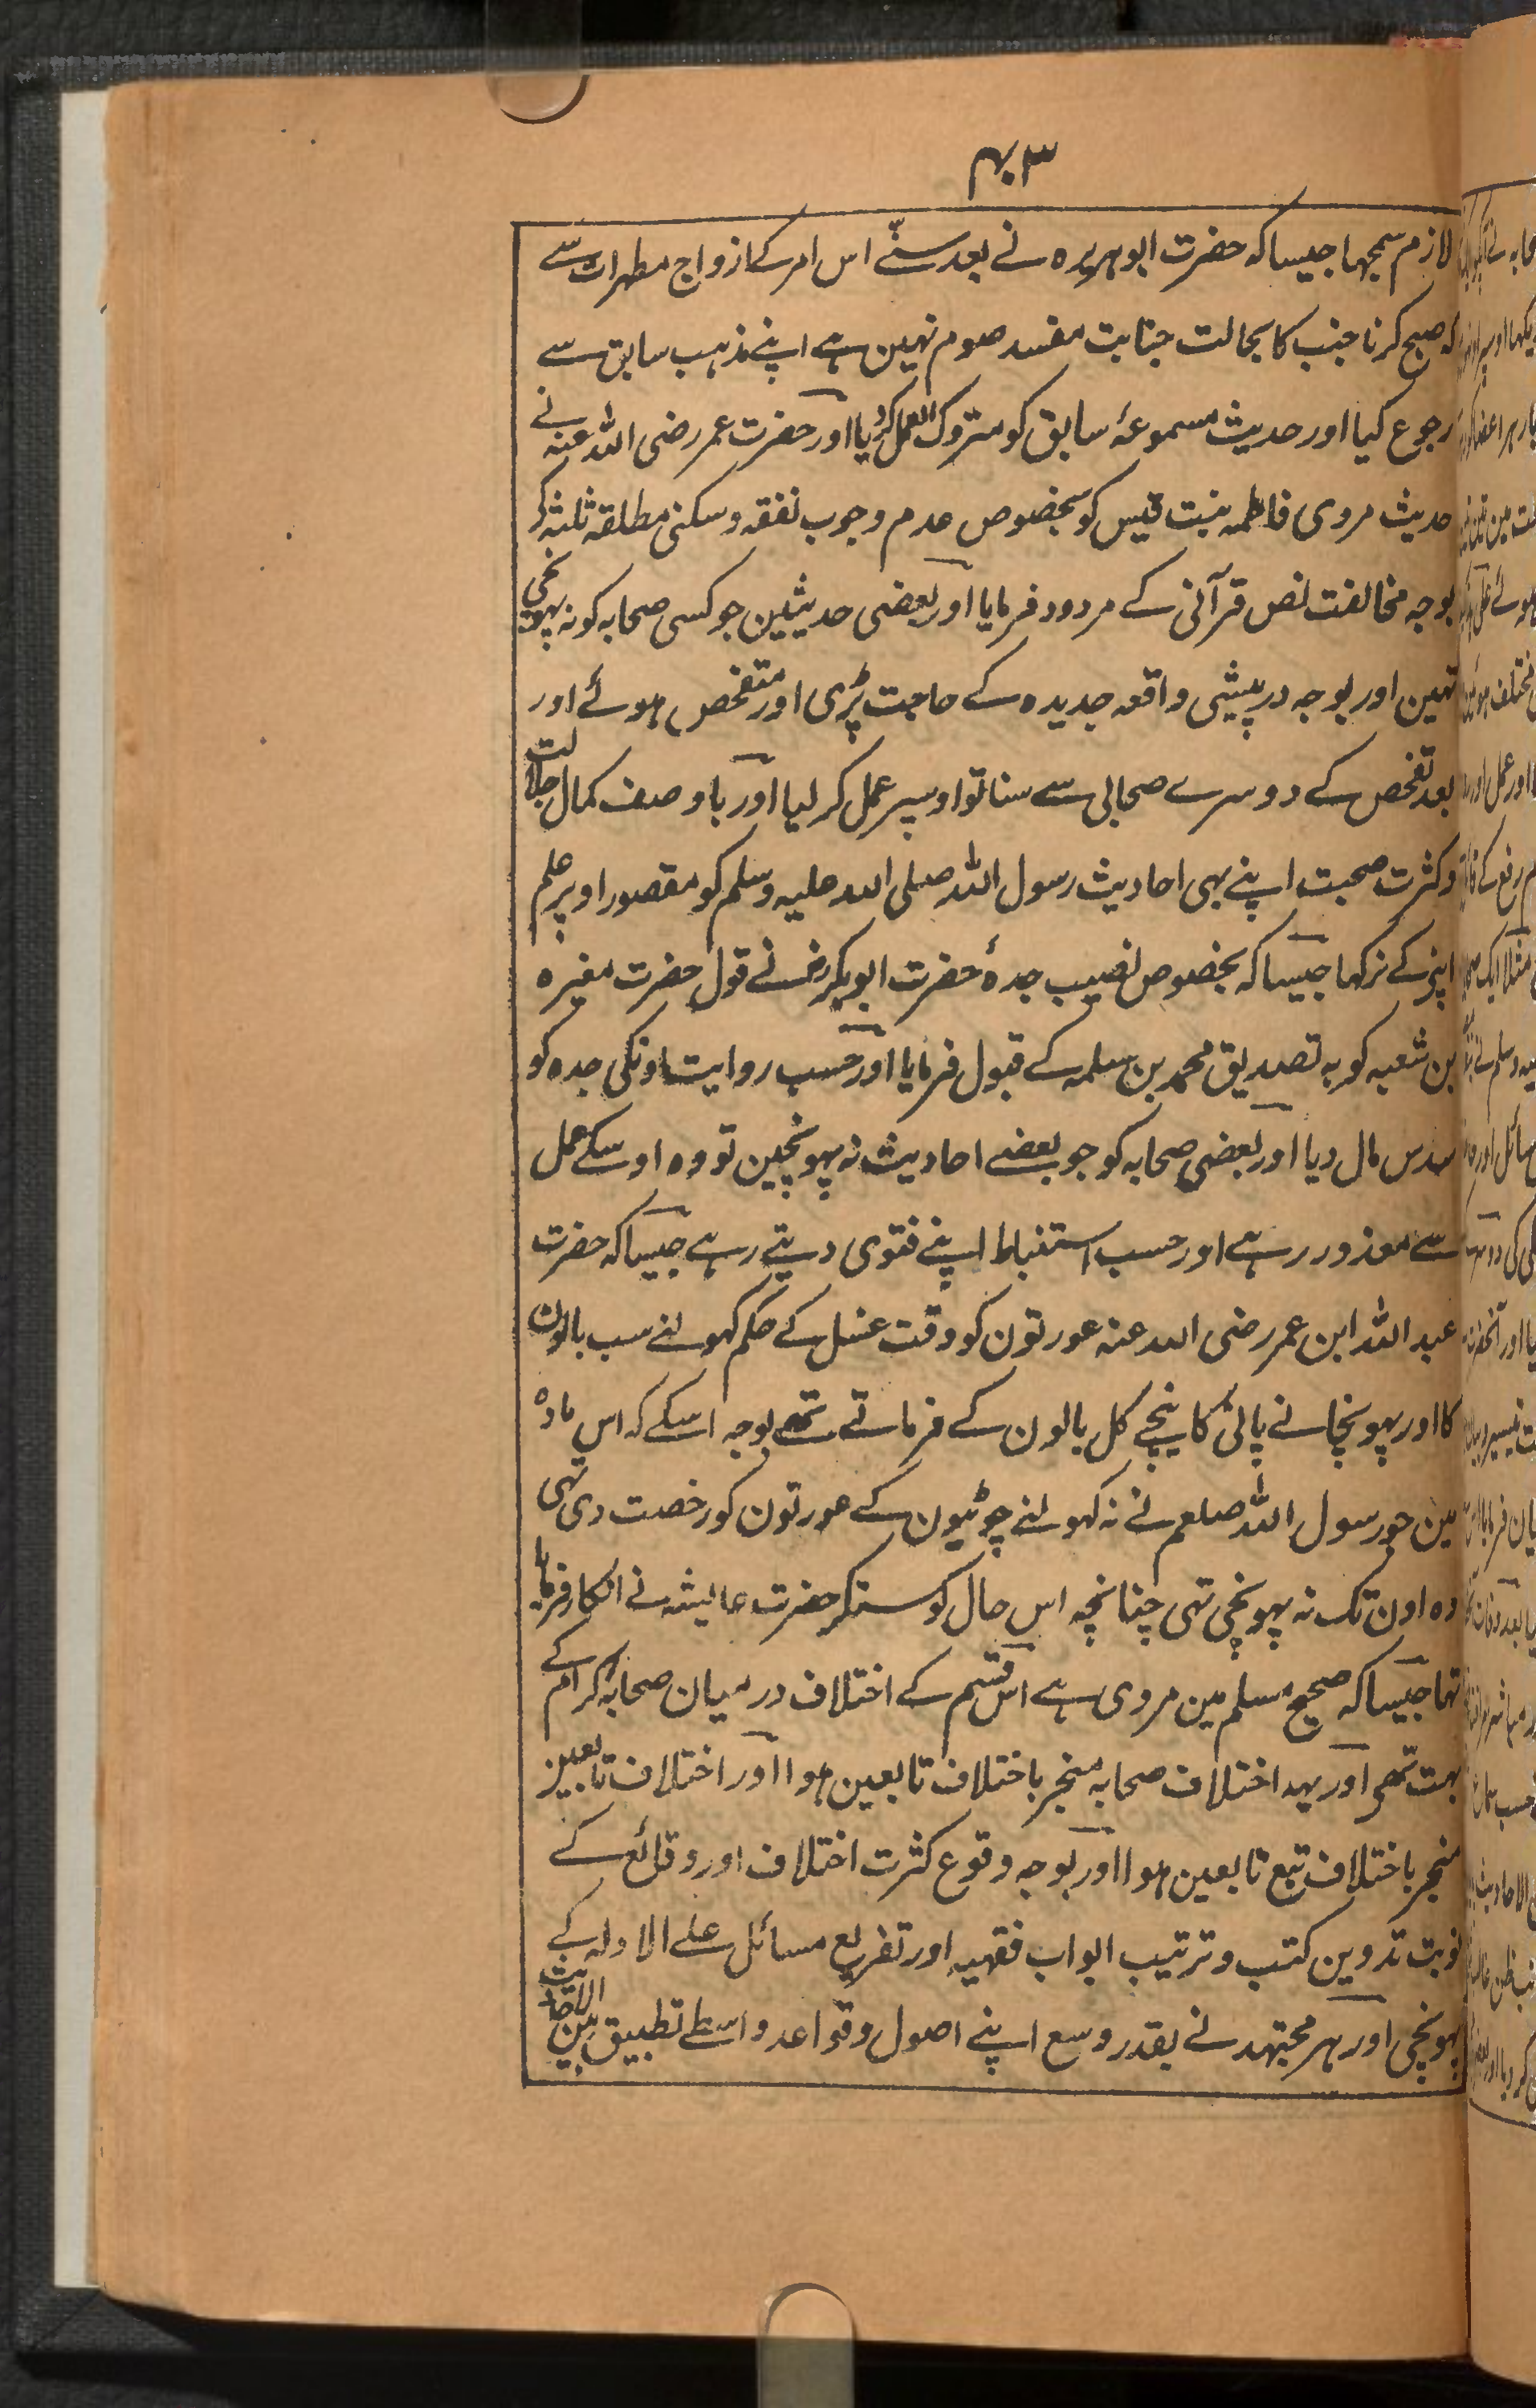 ۴۰۳
لازم سمجہا جیسا کہ حضرت ابو ہریرہ نے بعد سننے اس امر کے ازواج مطہرات سے
کہ صبح کرنا جنب کا بحالت جنابت مفسد صوم نہین ہے اپنے مذہب سابق سے
رجوع کیا اور حدیث مسموعۂ سابق کو متروک العمل کردیا اور حضرت عمر رضی اللہ عنہ نے
حدیث مروی فاطمہ بنت قیس کو بخصوص عدم وجوب نفقہ و سکنی مطلقہ ثلثہ کے
بوجہ مخالفت نص قرآنی کے مردود فرمایا اور بعضی حدیثین جو کسی صحابہ کو نہ پہونچی
تہین اور بوجہ درپیشی واقعہ جدیدہ کے حاجت پڑی اور متفحص ہوئے اور
بعد تفحص کے دوسرے صحابی سے سنا تو اوسپر عمل کر لیا اور باوصف کمال جلالت
وکثرت صحبت اپنے بہی احادیث رسول اللہ صلی اللہ علیہ وسلم کو مقصور اوپر علم
اپنی کے نرکہا جیسا کہ بخصوص نصیب جدۂ حضرت ابوبکر رض نے قول حضرت مغیرہ
بن شعبہ کو بہ تصدیق محمد بن سلمہ کے قبول فرمایا اور حسب روایت اونکی جدہ کو
سدس مال دیا اور بعضی صحابہ کو جو بعضے احادیث نہ پہونچین تو وہ اوسکے عمل
سے معذور رہے اور حسب استنباط اپنے فتوی دیتے رہے جیسا کہ حضرت
عبد اللہ ابن عمر رضی اللہ عنہ عورتون کو وقت غسل کے حکم کہولنے سب بالون
کا اور پہونچانے پانی کا نیچے کل بالون کے فرماتے تھے بوجہ اسکے کہ اس مادہ
مین جو رسول اللہ صلعم نے نہ کہولنے چوٹیون کے عورتون کو رخصت دی تہی
وہ اون تک نہ پہونچی تہی چنانچہ اس حال کو سنکر حضرت عایشہ نے انکار فرمایا
تہا جیسا کہ صحیح مسلم مین مروی ہے اس قسم کے اختلاف درمیان صحابہ کرام کے
بہت تھے اور یہہ اختلاف صحابہ منجر باختلاف تابعین ہوا اور اختلاف تابعین
منجر باختلاف تبع تابعین ہوا اور بوجہ وقوع کثرت اختلاف اور وقائع کے
نوبت تدوین کتب و ترتیب ابواب فقہیہ اور تفریع مسائل علے الادلہ کے
پہونچی اور ہر مجتہد نے بقدر وسع اپنے اصول وقواعد واسطے تطبیق بین الاحادیث